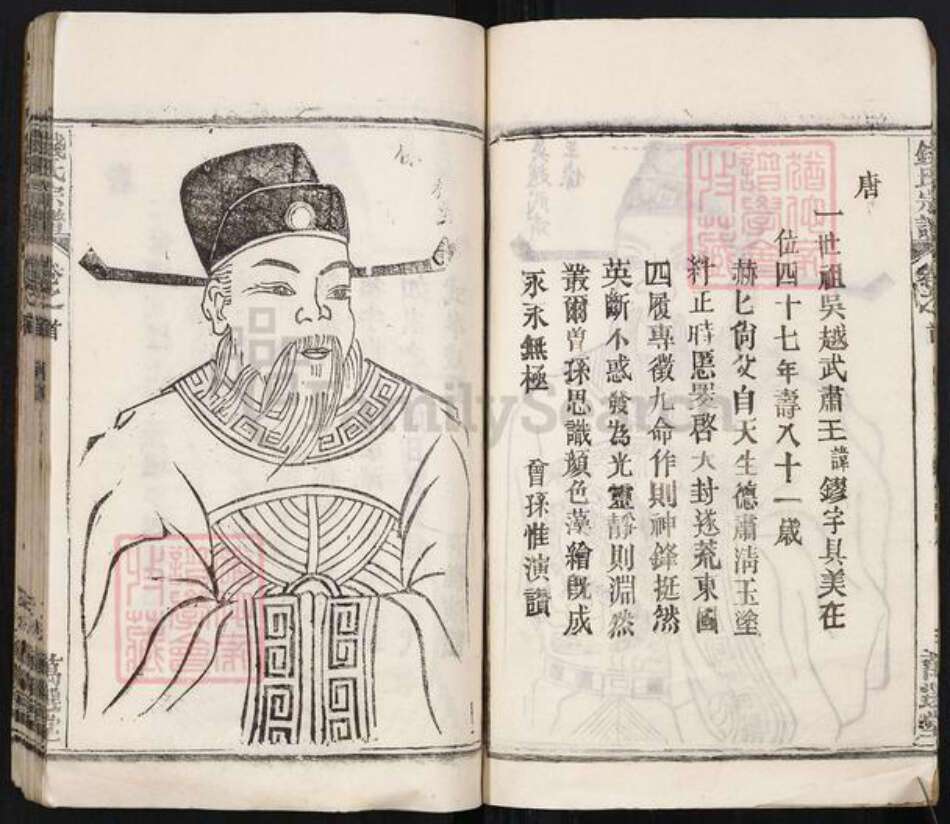 唐
一世祖吳越武肅王諱鏐字具美在
位四十七年壽八十一歲
赫匕尙父自天生德肅清玉塗
糾正時慝爰啓大封遂荒東國
四履專徵九命作則神鋒挺然
英斷不惑發為光靈靜則淵然
叢爾曾孫思識顏色藻繪旣成
永永無極
曾孫惟演讚
錢氏宗譜
卷之首
萬選堂
FamilySearch